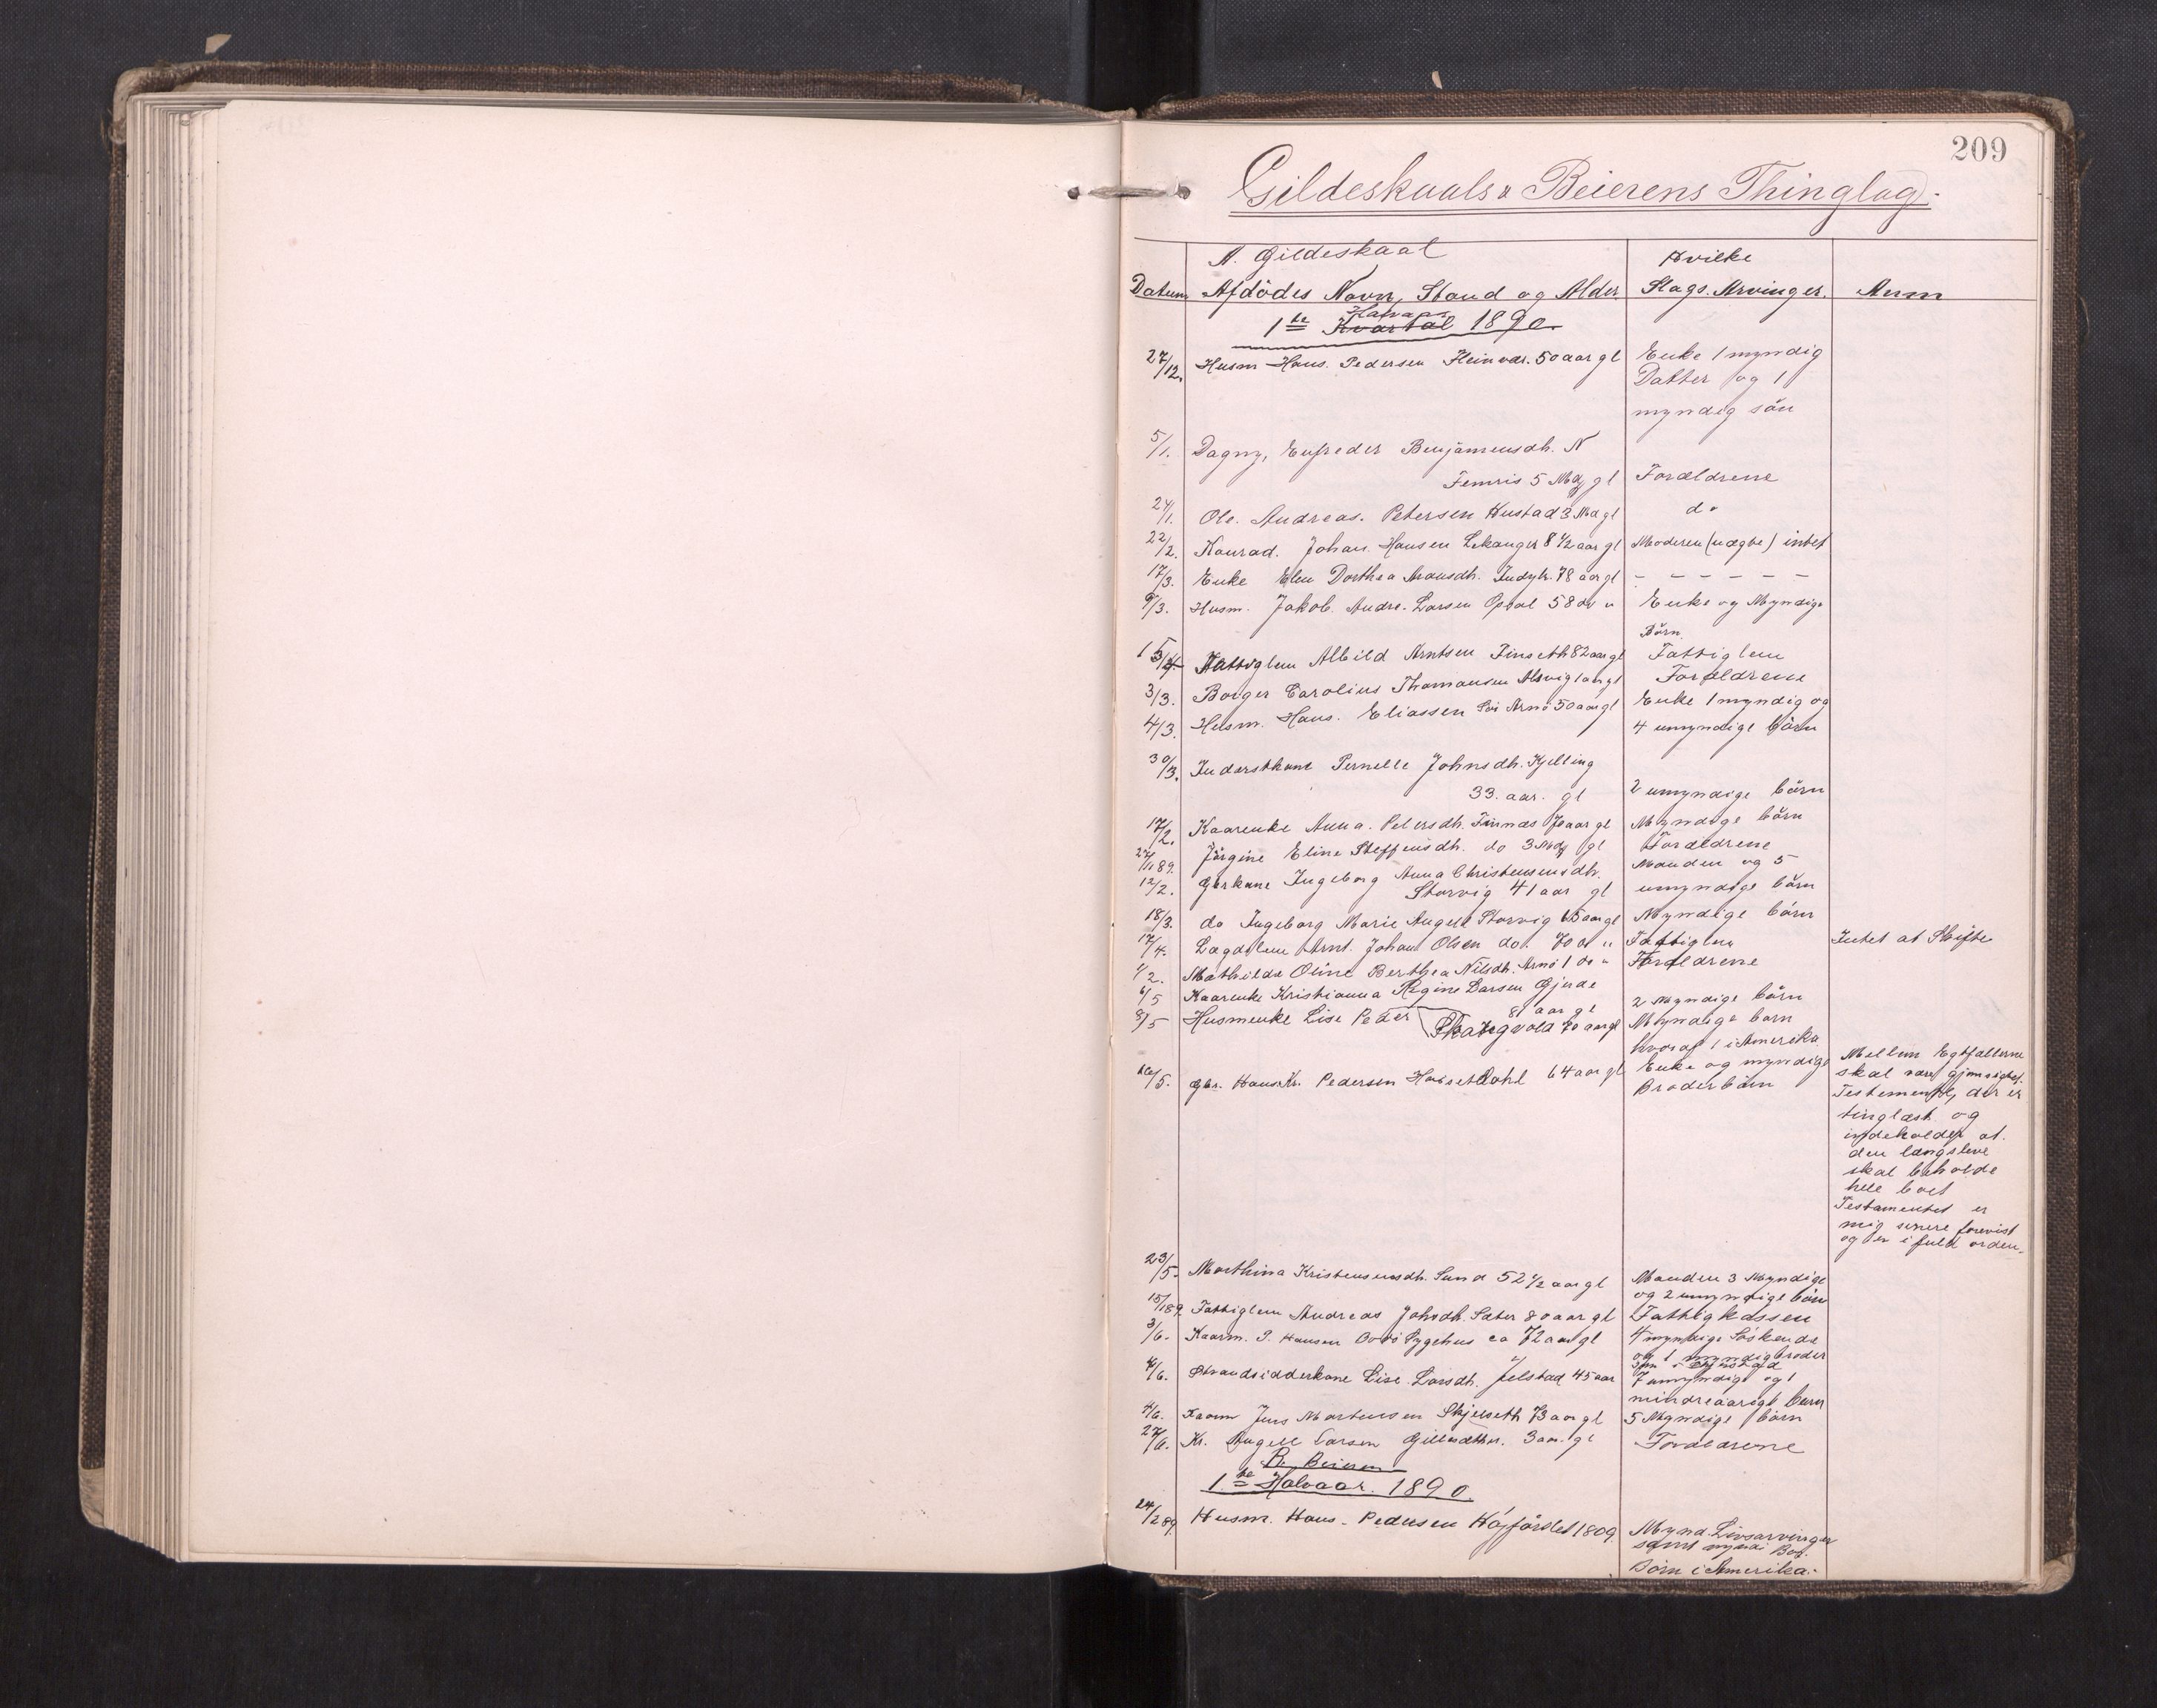 209
Gildeskaals & Beierens Thinglag.
A. Gildeskaal
Hvilke
Datum Afdödes Navn, Stand og Alder. Slags Arvinger. Anm
Halvaar
1te Kvartal 1890.
27/12. Husm Hans. Pedersen Fleinvær. 50 aar gl Enke 1 myndig
Datter og 1
myndig sön
5/1. Dagny, Benjaminsdh. N
Femris 5 Mdr gl Forældrene
24/1. Ole. Andreas. Petersen Hustad 3 Md gl do
22/2. Konrad. Johan. Hansen Lekanger 8 1/2 aar gl Moderen (uægte) intet
17/3. Enke Elen Dorthea Indyr. 78 aar gl - - - - - -
9/3. Husm. Jakob. Andr. Larsen Opsal 58 do " Enke og Myndige
Börn.
15/4 Fattiglem Albild Arntsen Finseth 82 aar gl Fattiglem
3/3. Borger Carolius Thomassen Alsvig 1 aar gl Forældrene
4/3. Husm. Hans. Eliassen Sör Arnö 50 aar gl Enke 1 myndig og
4 umyndige börn
30/3. Inderstkone Pernelle Johnsdh. Kjelling
33. aar. gl 2 umyndige börn
17/2. Kaarenke Anna. Petersdh. Finnæs 70 aar gl Myndige börn
27/11 89. Jörgine Eline Steffensdh. do 3 Mdr gl Forældrene
12/2. Gbrkone Ingeborg Anna Christensensdh. Manden og 5
Storvig 41 aar gl umyndige börn
18/3. do Ingeborg Marie Angell Storvig 65 aar gl Myndige börn
17/4. Lægdslem Arnt. Johan Olsen do. 70 do " Fattiglem Intet at Skifte
1/2. Mathilde Oline Berthea Nilsdh. Arnö 1 do " Forældrene
6/5 Kaarenke Kristianna Regine Larsen Gjerde
81 aar gl 2 Myndige börn
8/5 Husmenke Lise Peder Skangvold 70 aar gl Myndige born
hvoraf 1 i Amerika
16/5. Gbr. Hans Kr. Pedersen 64 aar gl Enke og myndige
Broderbörn
Mellem Egtefællerne
skal være gjensidigt
Testemente, der er
tinglæst og
indeholder at.
den længstleve
skal beholde
hele boet
Testamentet er
mig senere forevist
og er i fuld orden.
23/5. Marthina Kristensensdh. Sund 52 1/2 aar gl Manden 3 Myndige
og 2 umyndige börn
15/1 89. Fattiglem Andreas Johsdh. Sæter 80 aar gl Fattigkassen
3/6. Kaarm. P. Hansen Bodö Sygehus ca 72 aar gl 4 myndige Söskende
og 1 myndig broder
4/6. Strandsidderkone Lise. Larsdh. Jelstad 45 aar 7 umyndige og 1
mindreaarigt barn
4/6. Kaarm Jens Mortensen Skjelseth 73 aar gl 5 Myndige börn
27/6. Kr. Angell Larsen 3 aar. gl Forældrene
B. Beieren
1te Halvaar. 1890.
24/2 89. Husm. Hans. Pedersen Högforslet 1809. Mynd. Livsarvinger
samt mynd. Bor.
Börn i Amerika.